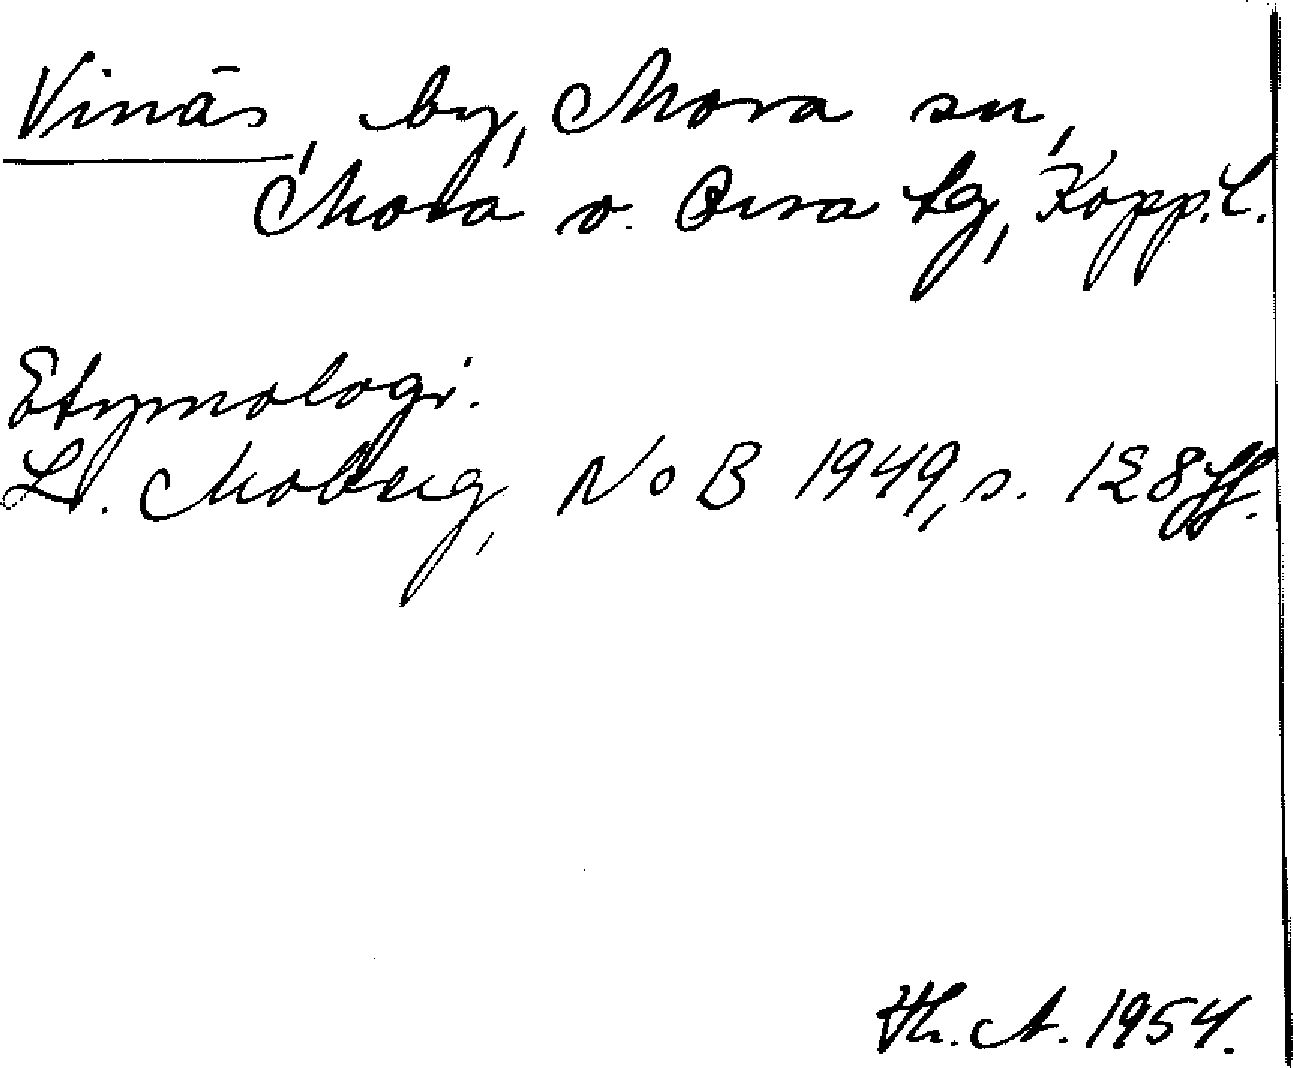 Vinäs, by, Mora sn,
Mora o. Orsa tg, Kopp.l.
Etymologi.
L. Moberg, NoB 1949, s. 128ff.
Th. A. 1954.